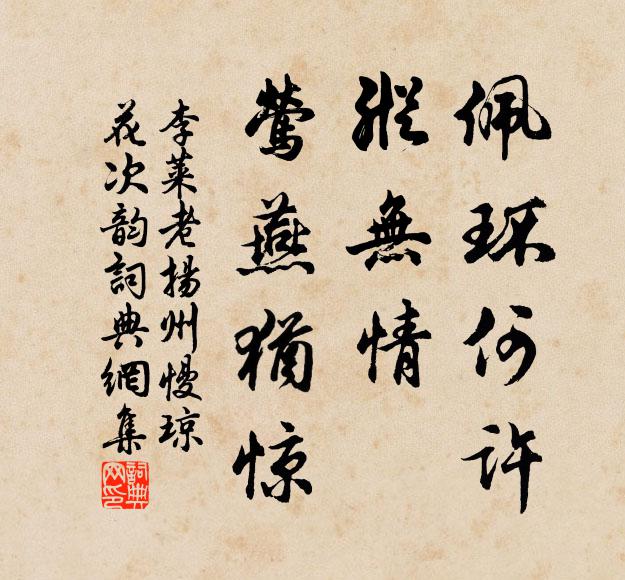 佩环何许
縱無情
鶯燕猶惊
李萊老揚州慢琼
花次韵詞典網集
詞典网印